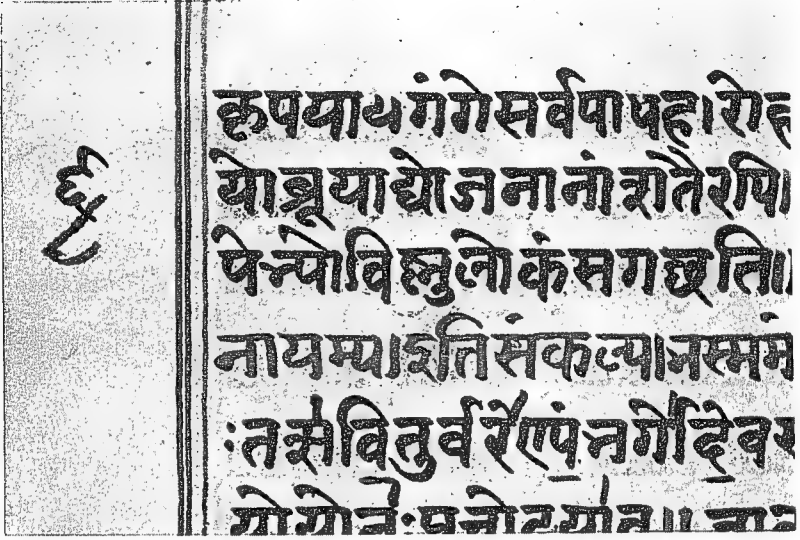 कृपयाथगंगेसर्वपापह।रोह
योब्रूयाद्योजनानांशतैरपि।
पेभ्योविष्णुलोकंसगछति॥
नायम्य।इतिसंकल्प्य।भस्ममं
:तत्सवितुर्वरेण्यंभर्गोदेवस्
योयोनःप्रचोदयात॥